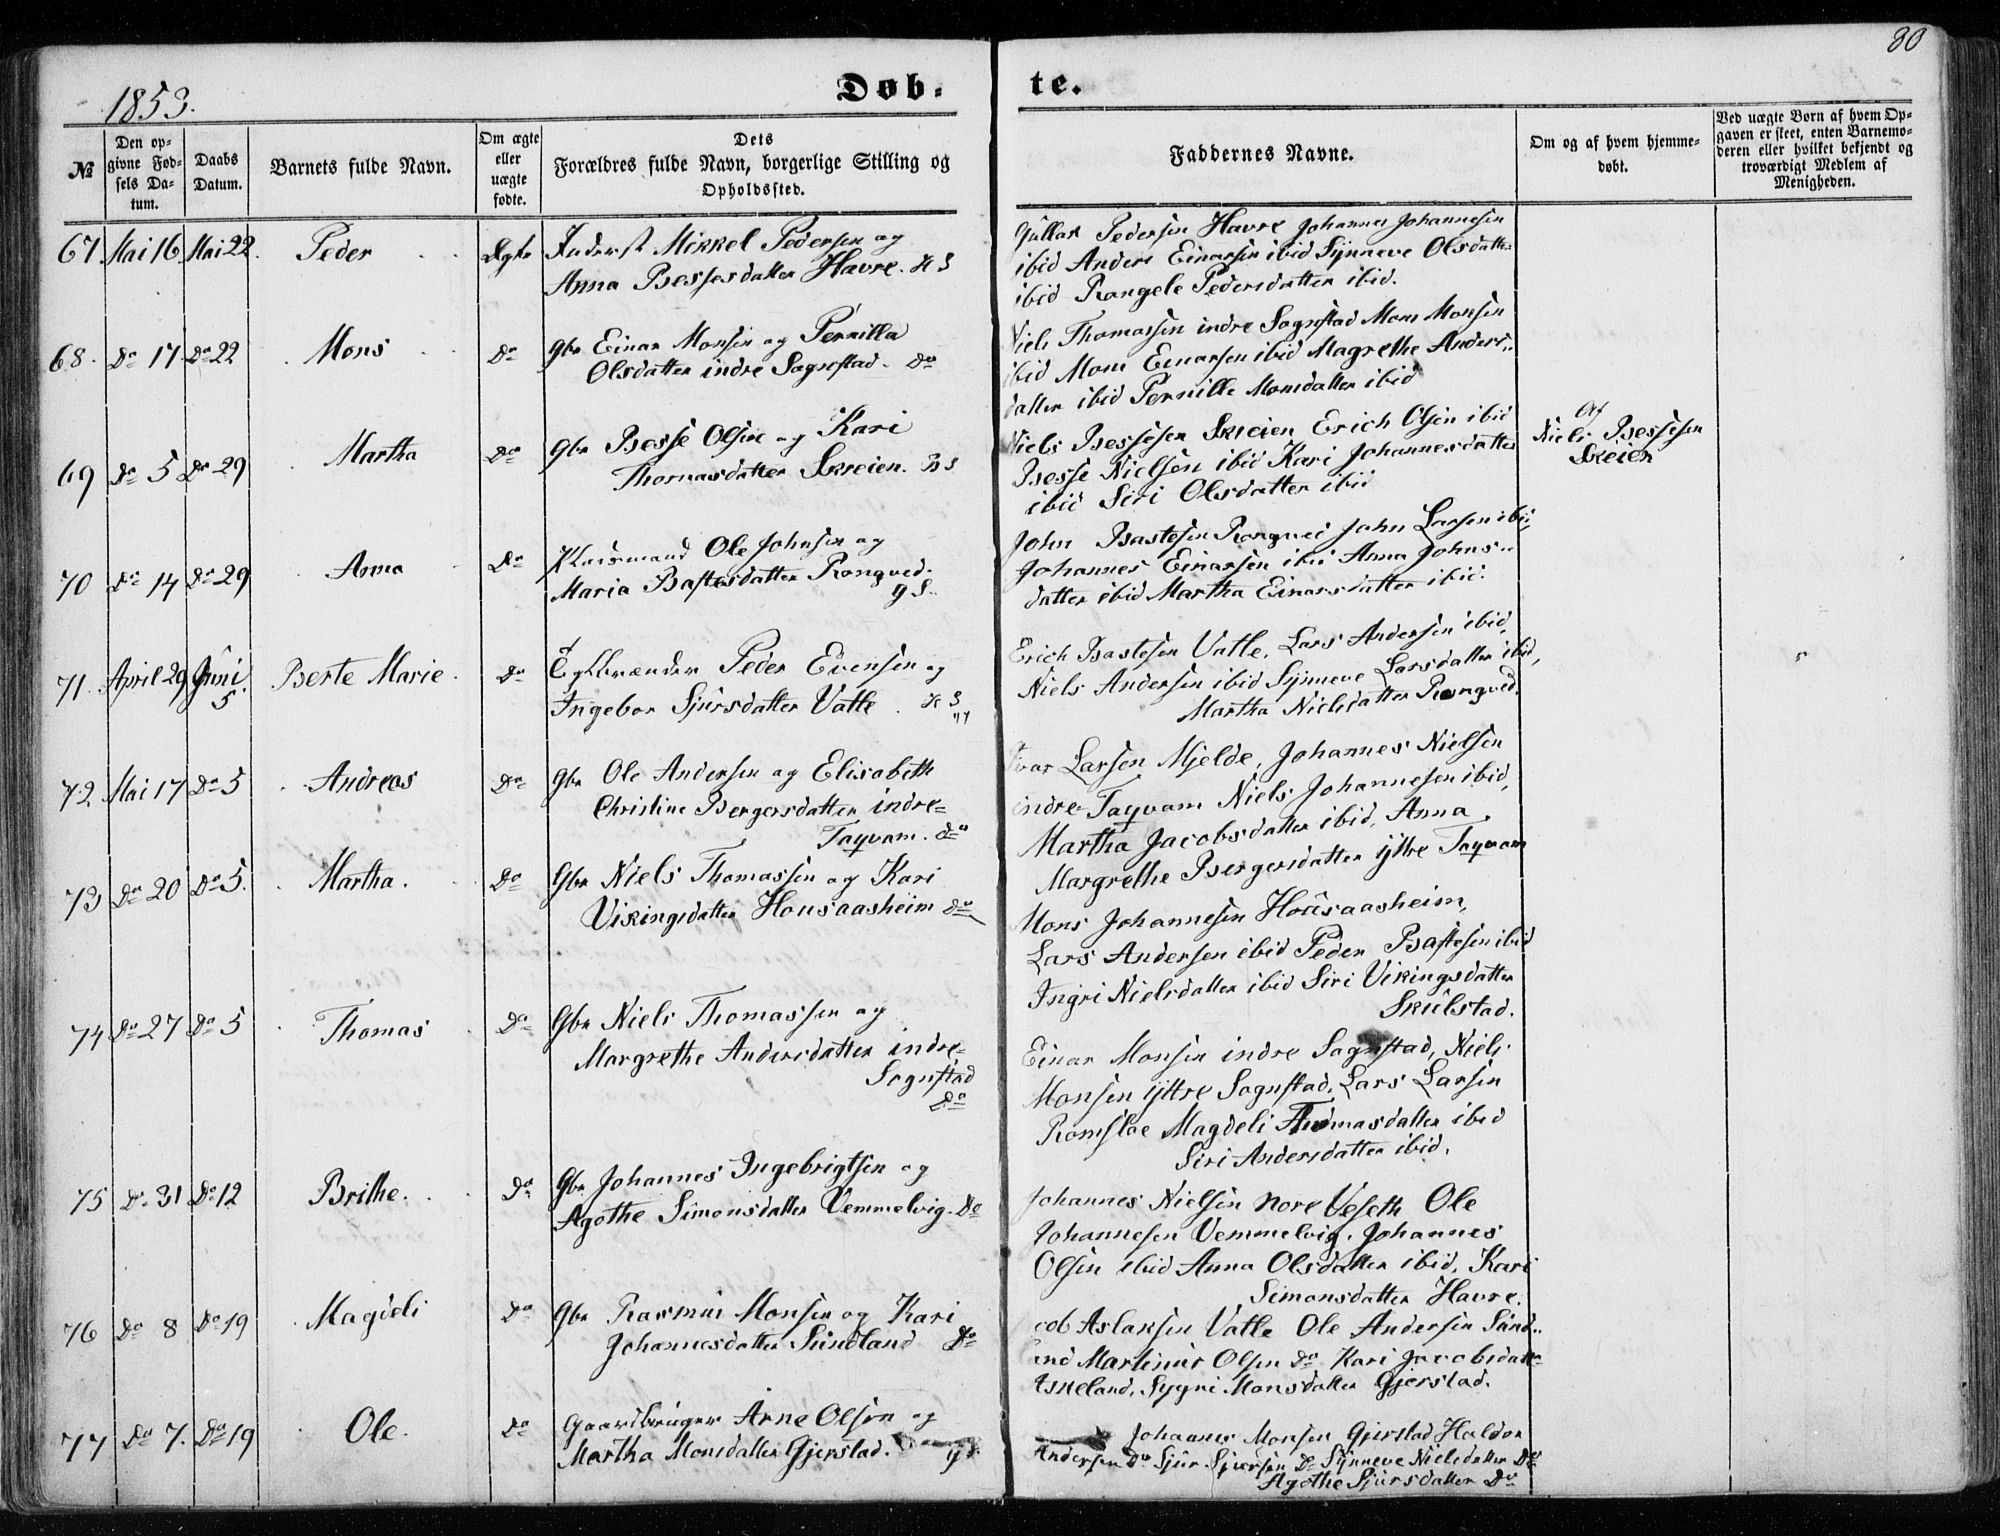 80
1853.
Døb-
te.
№
Den op-
givne Fød-
sels Da-
tum.
Daabs
Datum.
Barnets fulde Navn.
Om ægte
eller
uægte
fødte.
Dets
Forældres fulde Navn, borgerlige Stilling og
Opholdssted.
Faddernes Navne.
Om og af hvem hjemme-
døbt.
Ved uægte Børn af hvem Op-
gaven er skeet, enten Barnemo-
deren eller hvilket bekjendt og
troværdigt Medlem af
Menigheden.
67. Mai 16 Mai 22. Peder Ægte Inderst Mikkel Pedersen og
Anna Bessesdatter Havre. H S
Gullak Pedersen Havre Johannes Johannesen
ibid Anders Einarsen ibid Synneve Olsdatter
ibid Rangele Pedersdatter ibid.
68. Do 17 Do 22 Mons Do Gbr Einar Monsen og Pernilla
Olsdatter indre Sognstad. Do
Niels Thomassen indre Sognstad Mons Monsen
ibid Mons Einarsen ibid Magrethe Anders-
datter ibid Pernille Monsdatter ibid
69 Do 5 Do 29 Martha Do Gbr Besse Olsen og Kari
Thomasdatter Skreien. H S
Niels Bessesen Skreien Erich Olsen ibid
Besse Nielsen ibid Kari Johannesdatter
ibid Siri Olsdatter ibid
Af
Niels Bessesen
Skeien
70 Do 14 Do 29 Anna Do Huusmand Ole Johnsen og
Maria Bastesdatter Rongved.
G S.
John Bastesen Rongved John Larsen ibid
Johannes Einarsen ibid Anna Johns-
datter ibid Martha Einarsdatter ibid.
71. April 29 Juni 5 Berte Marie Do Teglbrænder Peder Evensen og
Ingebor Sjursdatter Vatle. H S
Erich Bastesen Vatle, Lars Andersen ibid,
Niels Andersen ibid Synneve Larsdatter ibid,
Martha Nielsdatter Rongved.
72. Mai 17 Do 5 Andreas Do Gbr Ole Andersen og Elisabeth
Christine Bergersdatter indre-
Taqvam. Do
Ivar Larsen Mjelde, Johannes Nielsen
indre Taqvam Niels Johannesen ibid,
Martha Jacobsdatter ibid, Anna
Margrethe Bergersdatter ijttre Taqvam
73 Do 20 Do 5. Martha. Do Gbr Niels Thomassen og Kari
Vikingsdatter Housaasheim Do
Mons Johannesen Housaasheim,
Lars Andersen ibid Peder Bastesen ibid
Ingri Nielsdatter ibid Siri Vikingsdatter
Skulstad.
74 Do 27 Do 5 Thomas Do Gbr Niels Thomassen og
Margrethe Andersdatter indre-
Sognstad
Do
Einar Monsen indre Sognstad, Niels
Monsen ijttre Sognstad, Lars Larsen
Romsloe Magdeli Thomasdatter ibid
Siri Andersdatter ibid.
75 Do 31 Do 12 Brithe. Do Gbr Johannes Ingebrigtsen og
Agothe Simonsdatter Vemmelvig. Do
Johannes Nielsen nore Veseth Ole
Johannesen Vemmelvig, Johannes
Olsen ibid Anna Olsdatter ibid, Kari
Simonsdatter Havre.
76 Do 8 Do 19 Magdeli Do Gbr Rasmus Monsen og Kari
Johannesdatter Sundland Do
cob Aslaksen Vatle Ole Andersen Sund-
land Martinus Olsen Do Kari Jacobsdatter
Askeland, Sygni Monsdatter Gjerstad.
77 Do 7. Do 19 Ole. Do Gaardbruger Arne Olsen og
Martha Monsdatter Gjerstad. G S.
Johannes Monsen Gjerstad Haldor
Andersen Do Sjur Sjursen Do Synneve Nielsdatter Do
Agothe Sjursdatter Do